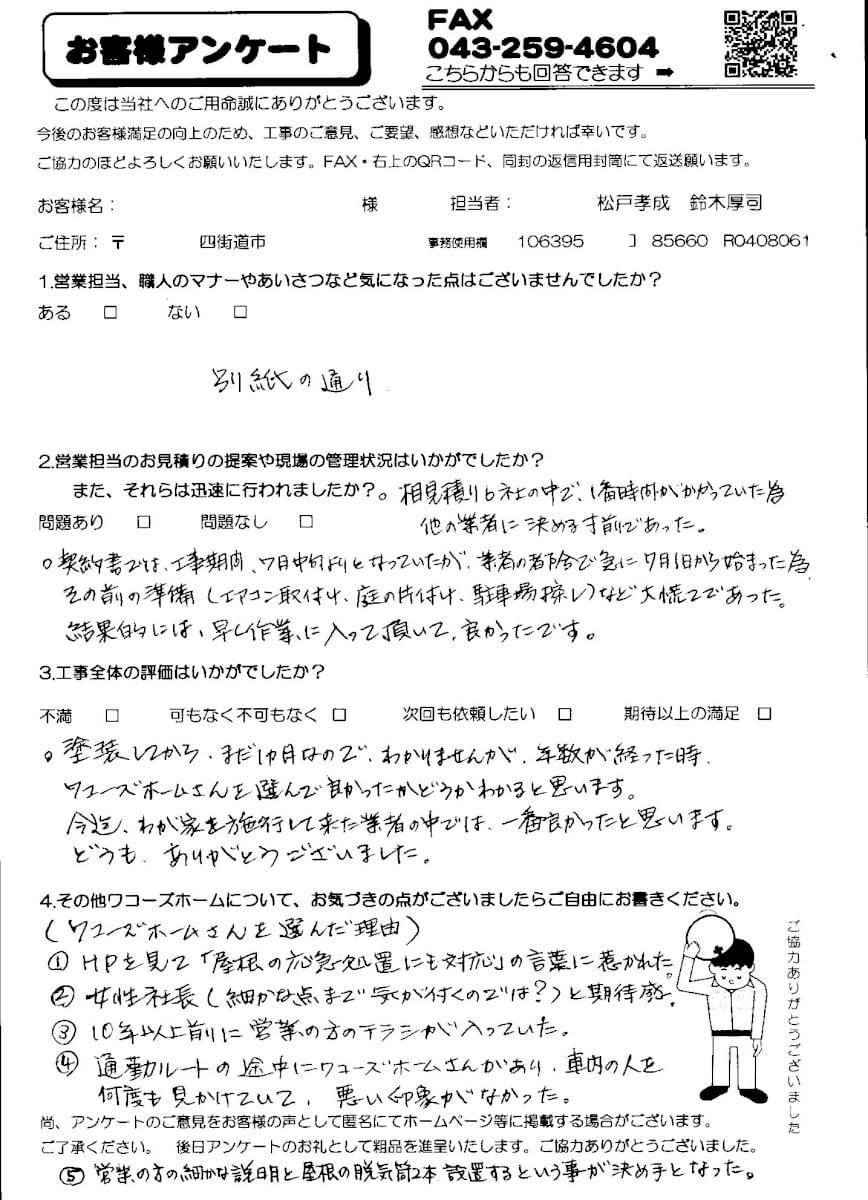 お客様アンケート
FAX
043-259-4604
こちらからも回答できます ➡
この度は当社へのご用命誠にありがとうございます。
今後のお客様満足の向上のため、工事のご意見、ご要望、感想などいただければ幸いです。
ご協力のほどよろしくお願いいたします。FAX・右上のQRコード、同封の返信用封筒にて返送願います。
お客様名： 様 担当者： 松戸孝成 鈴木厚司
ご住所：〒 四街道市 事務使用欄 106395 85660 R0408061
1.営業担当、職人のマナーやあいさつなど気になった点はございませんでしたか？
ある □ ない □
別紙の通り
2.営業担当のお見積りの提案や現場の管理状況はいかがでしたか？
また、それらは迅速に行われましたか？。相見積り6社の中で、1番時間がかかっていた為
問題あり □ 問題なし □ 他の業者に決める寸前であった。
○契約書では、工事期間、7月中旬よりとなっていたが、業者の都合で急に7月1日から始まった為
その前の準備（エアコン取付け、庭の片付け、駐車場探し）など大慌てであった。
結果的には、早く作業に入って頂いて、良かったです。
3.工事全体の評価はいかがでしたか？
不満 □ 可もなく不可もなく □ 次回も依頼したい □ 期待以上の満足 □
○塗装してから、まだ1ヶ月なので、わかりませんが、年数が経った時、
ワコーズホームさんを選んで良かったかどうかわかると思います。
今迄、わが家を施行して来た業者の中では、一番良かったと思います。
どうも、ありがとうございました。
4.その他ワコーズホームについて、お気づきの点がございましたらご自由にお書きください。
（ワコーズホームさんを選んだ理由）
① HPを見て「屋根の応急処置にも対応」の言葉に惹かれた。
② 女性社長（細かな点まで気が付くのでは？）と期待感。
③ 10年以上前に営業の方のチラシが入っていた。
④ 通勤ルートの途中にワコーズホームさんがあり、車内の人を
何度も見かけていて、悪い印象がなかった。
ご協力ありがとうございました
尚、アンケートのご意見をお客様の声として匿名にてホームページ等に掲載する場合がございます。
ご了承ください。 後日アンケートのお礼として粗品を進呈いたします。ご協力ありがとうございました。
⑤ 営業の方の細かな説明と屋根の脱気筒2本設置するという事が決め手となった。